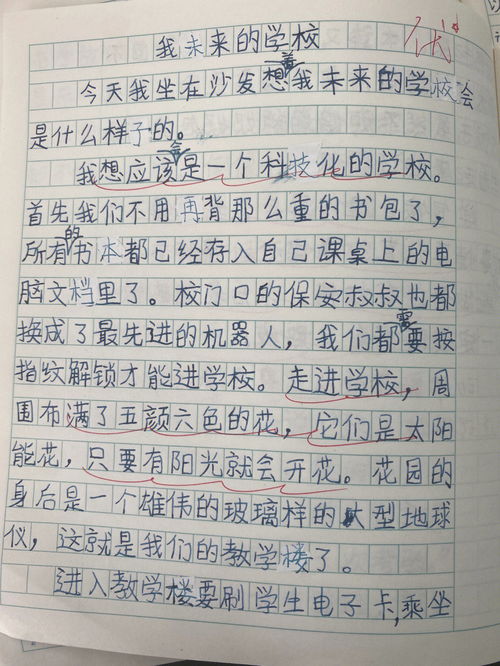 我未来的学校
优
今天我坐在沙发想着我未来的学校会
是什么样子的。
我想应该会是一个科技化的学校。
首先我们不用再背那么重的书包了,
所有的书本都已经存入自己课桌上的电
脑文档里了。校门口的保安叔叔也都
换成了最先进的机器人，我们都需要按
指纹解锁才能进学校。走进学校，周
围布满了五颜六色的花，它们是太阳
能花，只要有阳光就会开花。花园的
身后是一个雄伟的玻璃样的大型地球
仪，这就是我们的教学楼了。
进入教学楼要刷学生电子卡,乘坐